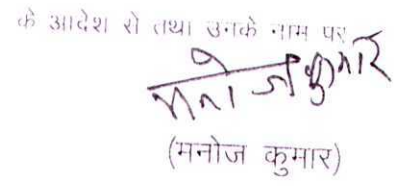 के आदेश से तथा उनके नाम पर
मनोज कुमार
(मनोज कुमार)